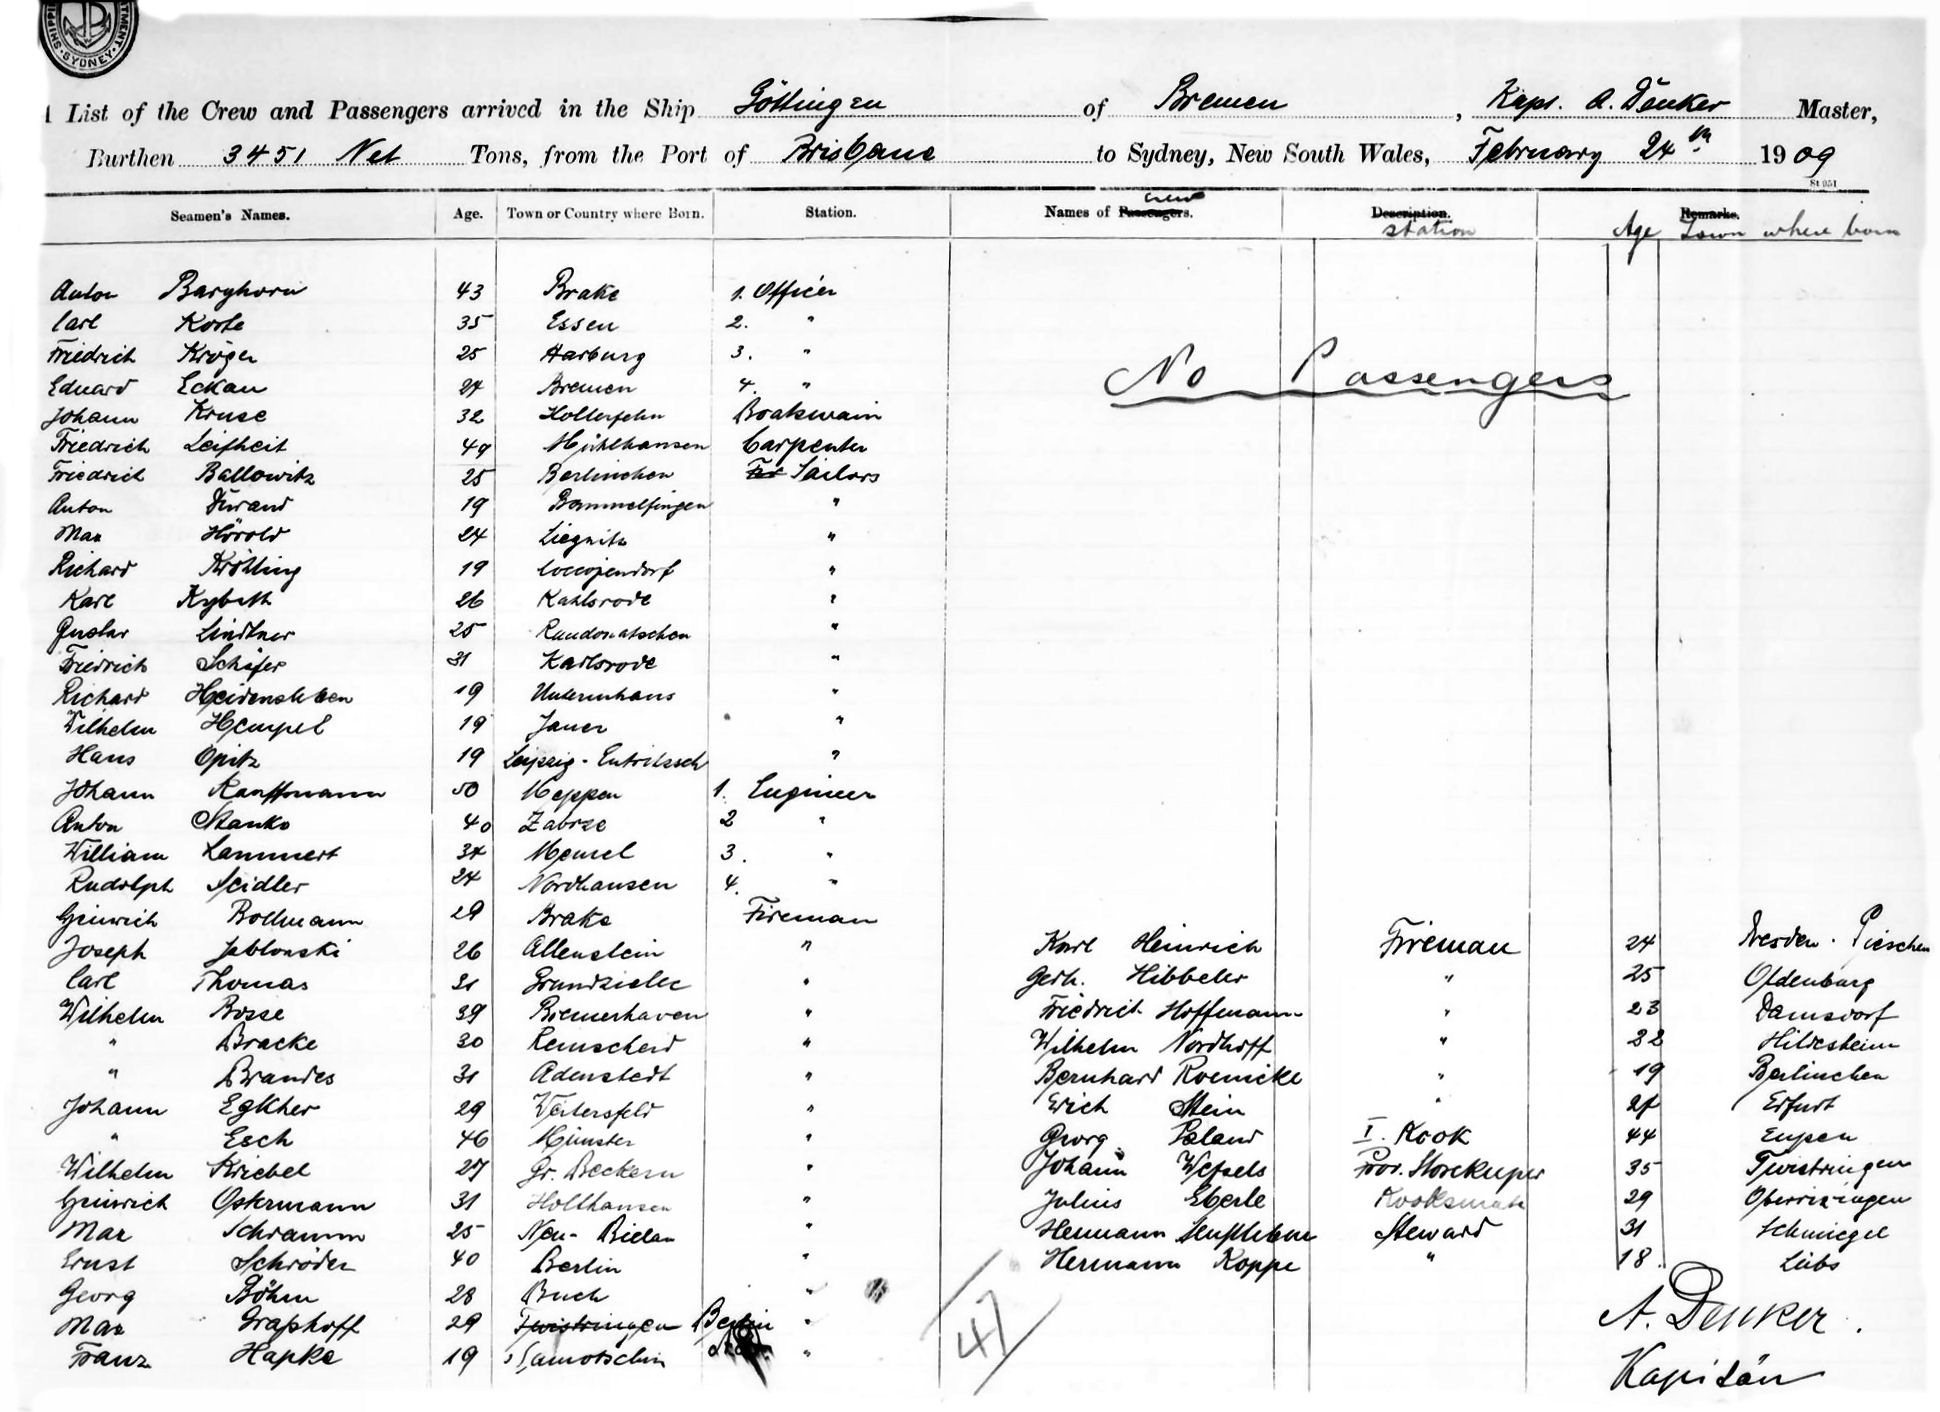 SHIPPI TMENT SYDNEY
List of the Crew and Passengers arrived in the Ship Göttingen of Bremen, Kapt. A. Denker Master,
Burthen 3451 Net Tons, from the Port of Brisbane to Sydney, New South Wales, February 24th 1909
St 951
Seamen's Names. Age. Town or Country where Born. Station. Names of Passengers. crew Description. station Age Remarks. Town where born
Anton Barghorn 43 Brake 1. Officer
Carl Korte 35 Essen 2. "
Friedrich Kröger 25 Harburg 3. "
No Passengers
Eduard Eckau 24 Bremen 4. "
Johann Kruse 32 Hollerfehn Boatswain
Friedrich Leifheit 49 Mühlhausen Carpenter
Friedrich Ballowitz 25 Berlinchen Sailors
Anton Durand 19 Bommelfingen "
Max Hörold 24 Liegnitz "
Richard Krölling 19 "
Karl Kybeth 26 Kahlsrode "
Gustav Lindtner 25 "
Friedrich Schäfer 31 Karlsrode "
Richard Heidensleben 19 Untermhaus "
Wilhelm Hempel 19 Jauer "
Hans Opitz 19 Leipzig - Eutritzsch "
Johann Kauffmann 50 Meppen 1. Engineer
Anton Stanko 40 Zabrze 2 "
William Lammert 34 Memel 3. "
Rudolph Seidler 24 Nordhausen 4. "
Heinrich Bollmann 29 Brake Fireman
Joseph Jablonski 26 Allenstein " Karl Heinrich Fireman 24 Dresden - Pieschen
Carl Thomas 31 " Gerh. Hibbeler " 25 Oldenburg
Wilhelm Bosse 39 Bremerhaven " Friedrich Hoffmann " 23 Damsdorf
" Bracke 30 Remscheid " Wilhelm Nordhoff " 22 Hildesheim
" Brandes 31 Adenstedt " Bernhard Roenicke " 19 Berlinchen
Johann Egkher 29 Weitersfeld " Erich Stein " 24 Erfurt
" Esch 46 Münster " Georg Paland I. Kook 44 Eupen
Wilhelm Kriebel 27 Gr. Beckern " Johann Wessels Prov. Storekeeper 35 Twistringen
Heinrich Ostermann 31 Holthausen " Julius Eberle Kooksmate 29 Oberrixingen
Max Schramm 25 Neu - Bielau " Hermann Steward 31 Schmiegel
Ernst Schröder 40 Berlin " Hermann Koppe " 18 Lübs
Georg Böhm 28 Buch "
Max Graphoff 29 Twistringen Berlin "
Franz Hapke 19 Samotschin "
47
A. Denker.
Kapitän